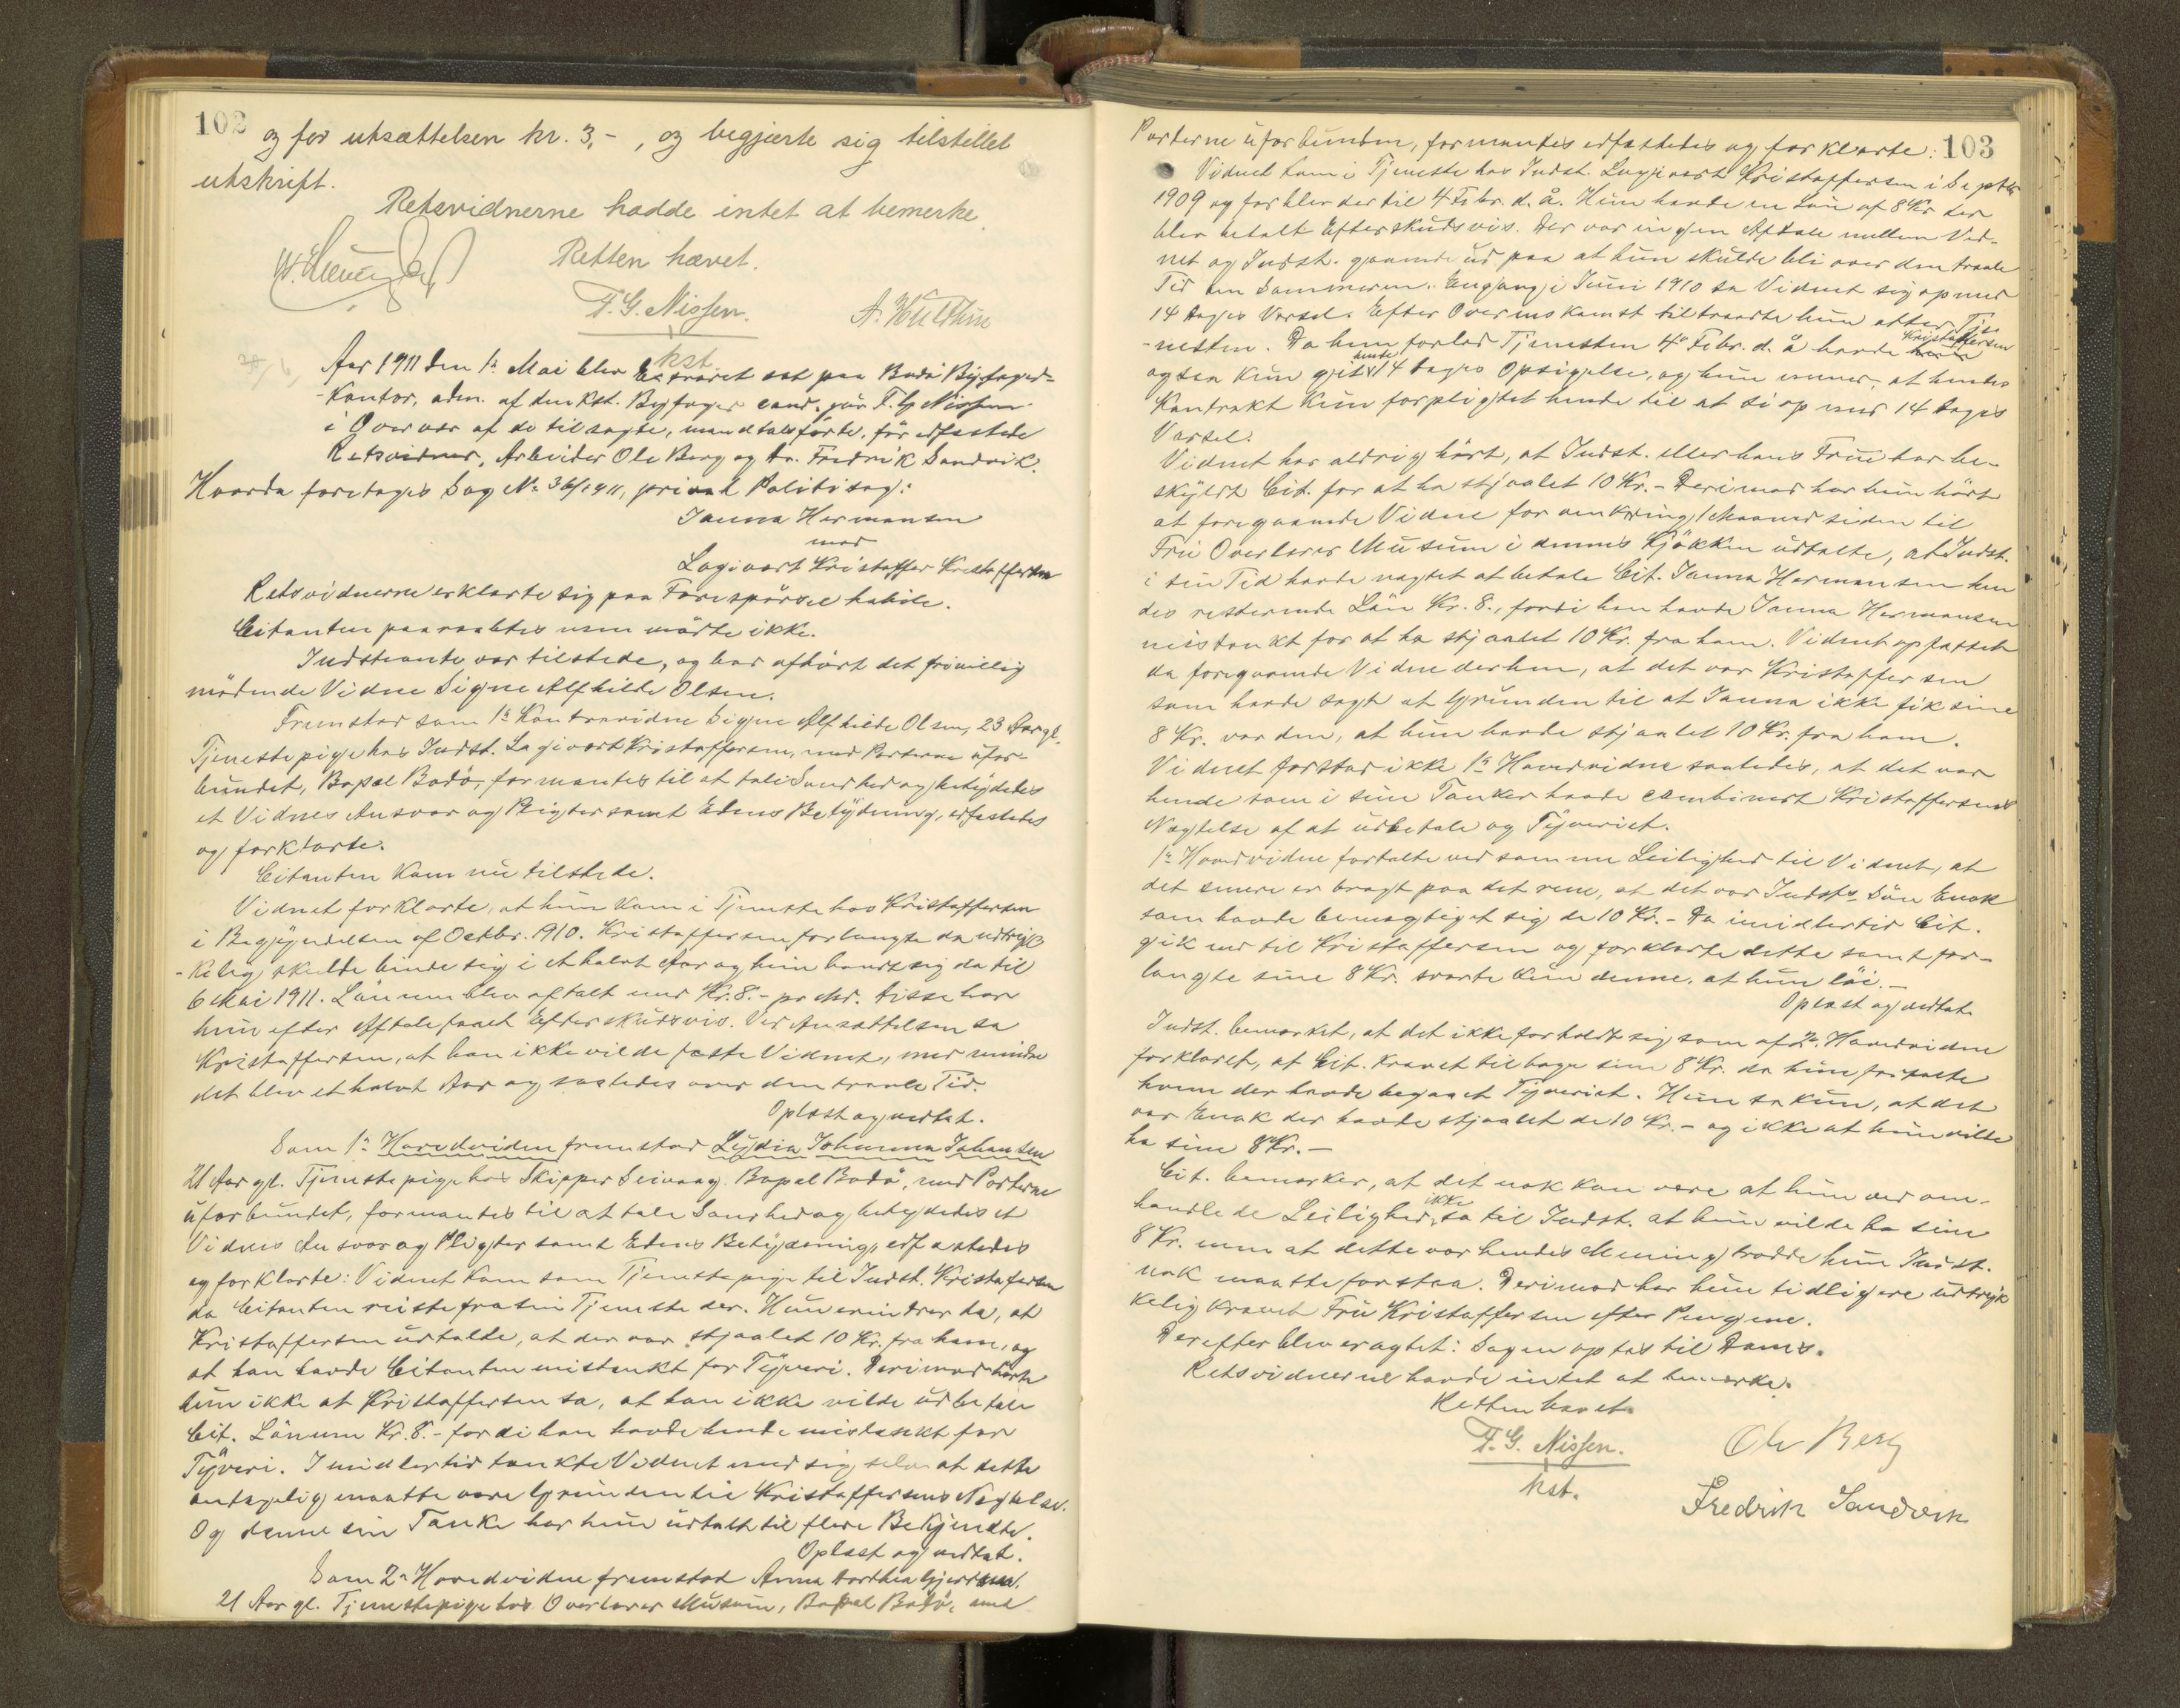 102
og for utsættelsen kr. 3,-, og begjærte sig tilstillet
utskrift.
Retsvidnerne hadde intet at bemerke.
Retten hævet.
F. G. Nissen.
kst
Aar 1911 den 1ste Mai blev Extraret sat paa Bodø Byfoged-
kontor, adm. af den kst. Byfoged cand. jur F. G Nissen
i Overvær af de tilsagte, mandtalsførte, før edfæstede
Retsvidner, Arbeider Ole Berg og do. Fredrik Sandvik.
Hvorda foretoges Sag No 36/1911, privat Politisag:
Janna Hermansen
mod
Lagivart Kristoffer Kristoffersen
Retsvidnerne erklærte sig paa Forespørsel habile.
Citanten paaraabtes men mødte ikke.
Indstevnte var tilstede, og har afhørt det frivillig
mødende Vidne Signe Alfhilde Olsen.
Fremstod som 1ste Kontravidne Signe Alfhilde Olsen, 23 Aar gl.
Tjenestepige hos Indst. Lagivart Kristoffersen, med Parterne ufor-
bundet, Bopæl Bodø, formantes til at tale Sandhed og betydedes
et Vidnes Ansvar og Pligter samt Edens Betydning, edfæstedes
og forklarte.
Citanten kom nu tilstede.
Vidnet forklarte, at hun kom i Tjeneste hos Kristoffersen
i Begyndelsen af Octbr. 1910. Kristoffersen forlangte da udtryk
-kelig skulde binde sig i et halvt Aar og hun bandt sig da til
6 Mai 1911. Lønnen blev aftalt med Kr. 8.- pr Md. Disse har
hun efter Aftale faaet Efterskudsvis. Ved Ansættelsen sa
Kristoffersen, at han ikke vilde fæste Vidnet, med mindre
det blev et halvt Aar og saaledes over den travle Tid.
Oplæst og vedtat.
Som 1ste Hovedvidne fremstod Lydia Johanna Johansen
21 Aar gl. Tjenestepige hos Skipper Seivaag. Bopæl Bodø, med Parterne
uforbundet, formantes til at tale Sandhed og betydedes et
Vidnes Ansvar og Pligter samt Edens Betydning, edfæstedes
og forklarte: Vidnet kom som Tjenestepige til Indst. Kristofersen
da Citanten reiste fra sin Tjeneste der. Hun erindrer da, at
Kristoffersen udtalte, at der var stjaalet 10 Kr. fra ham, og
at han havde Citanten mistænkt for Tyveri. Derimod hørte
hun ikke at Kristoffersen sa, at han ikke vilde udbetale
Cit. Lønnen Kr. 8.- fordi han havde hende mistænkt for
Tyveri. Imidlertid tænkte Vidnet med sig selv at dette
antagelig maatte være Grunden til Kristoffersens Nægtelse.
Og denne sin Tanke har hun udtalt til flere Bekjendte.
Oplæst og vedtat.
Som 2n Hovedvidne fremstod Anna Dorthea
21 Aar gl. Tjenestepige hos Overlærer Musum, Bopæl Bodø, med
103
Parterne uforbunden, formantes edfæstedes og forklarte:
Vidnet kom i Tjeneste hos Indst. Lagivart Kristoffersen i Septbr
1909 og forblev der til 4 Febr. d. å. Hun havde en Løn af 8 Kr der
blev betalt Efterskudsvis. Der var ingen Aftale mellem Vid-
net og Indst. gaaende ud paa at hun skulde bli over den travle
Tid om Sommeren. Engang i Juni 1910 sa Vidnet sig op med
14 Dages Varsel. Efter Overenskomst tiltraadte hun atter Tje
-nesten. Da hun forlod Tjenesten 4de Febr. d. å havde Kristoffersen
ogsaa kun git hende 14 Dages Opsigelse, og hun mener, at hendes
Kontrakt kun forpligtet hende til at si op med 14 Dages
Varsel.
Vidnet har aldrig hørt, at Indst. eller hans Frue har be-
skyldt Cit. for at ha stjaalet 10 Kr.- Derimod har hun hørt
at foregaaende Vidne for omkring 1 Maaned siden til
Fru Overlærer Musum i dennes Kjøkken udtalte, at Indst.
i sin Tid havde nægtet at betale Cit. Janna Hermansen hen
des resterende Løn Kr. 8., fordi han havde Janna Hermansen
mistænkt for at ha stjaalet 10 Kr. fra ham. Vidnet opfattet
da foregaaende Vidne derhen, at det var Kristoffersen
som havde sagt at Grunden til at Janna ikke fik sine
8 Kr. var den, at hun havde stjaalet 10 Kr. fra ham.
Vidnet forstod ikke 1ste Hovedvidne saaledes, at det var
hende som i sine Tanker havde combinert Kristoffersens
Nægtelse af at udbetale og Tyveriet.
1ste Hovedvidne fortalte ved samme Leilighed til Vidnet, at
det senere er bragt paa det rene, at det var Indsts Søn Enok
som havde bemægtiget sig de 10 Kr.- Da imidlertid Cit.
gik ned til Kristoffersen og forklarte dette samt for-
langte sine 8 Kr. svarte kun denne, at hun løi.-
Oplæst og vedtat.
Indst. bemærket, at det ikke forholdt sig som af 2n Hovedvidne
forklaret, at Cit. krævet tilbage sine 8 Kr. da hun fortalte
hvem der havde begaaet Tyveriet. Hun sa kun, at det
var Enok der havde stjaalet de 10 Kr.- og ikke at hun vilde
ha sine 8 Kr.-
Cit. bemærker, at det nok kan være at hun ved om-
handlede Leilighed ikke sa til Indst. at hun vilde ha sine
8 Kr. men at dette var hendes Mening trodde hun Indst.
nok maatte forstaa. Derimod har hun tidligere udtryk
kelig krævet Fru Kristoffersen efter Pengene.
Derefter blev eragtet: Sagen optas til Doms.
Retsvidnerne havde intet at bemærke.
Retten hævet.
F. G. Nissen.
kst.
Ole Berg
Fredrik Sandvik